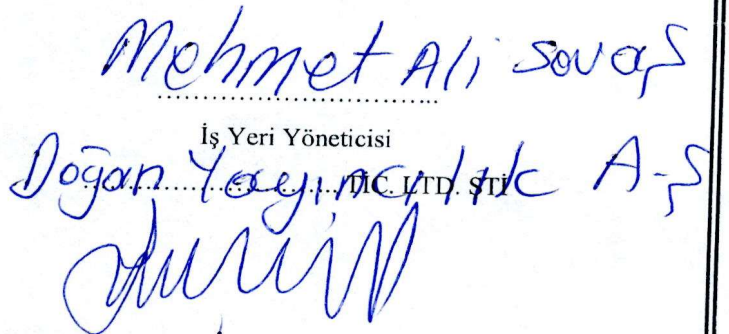 Mehmet Ali Savaş
..............................
İş Yeri Yöneticisi
Doğan Yayıncılık A.Ş
.............................. TİC. LTD. ŞTİ